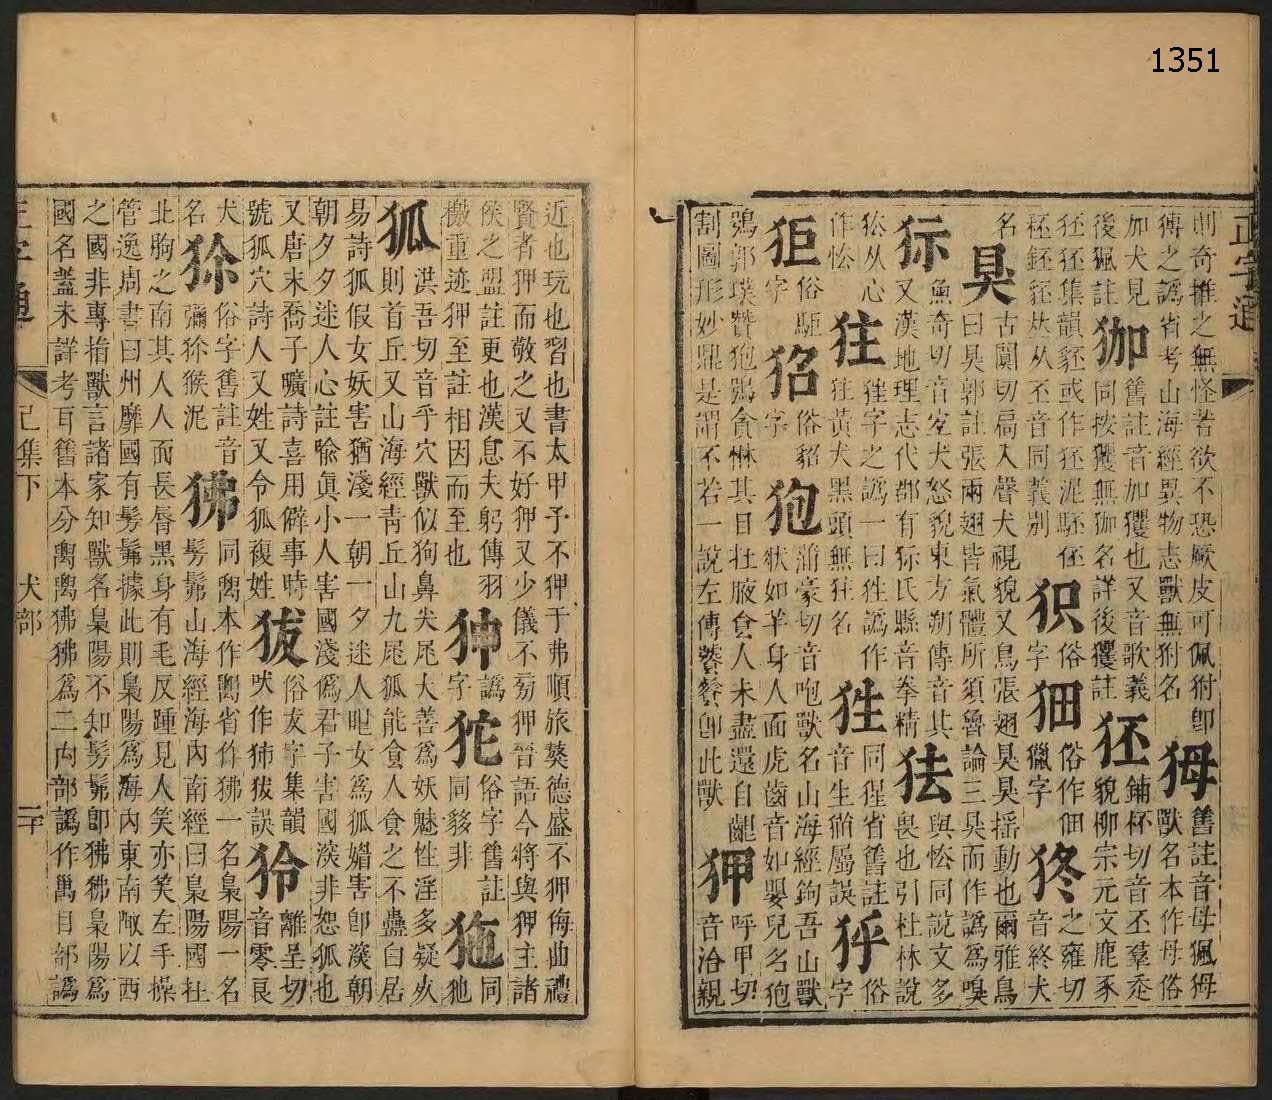 1351
正字通
則奇推之無怪若欲不恐厥皮可佩犻卽
傅之譌省考山海經異物志獸無犻名
㹇
舊註音母猦㹇
獸名本作母俗
加犬見
後猦註
㹢
舊註音加玃也又音歌義
同按玃無㹢名詳後玃註
狉
鋪杯切音丕羣忞
貌柳宗元文鹿豕
狉狉集韻豾或作狉泥駓伾
秠鉟豾𠀤从丕音同義別
俗
字
俗作佃
獵字
之雍切
音終犬
名
狊
古闃切扃入聲犬視貌又鳥張翅狊狊搖動也爾雅鳥
曰狊郭註張兩翅皆氣體所須魯論三狊而作譌為嗅
狋
魚奇切音宐犬怒貌東方朔傳音其
又漢地理志代郡有狋氏縣音拳精
㹤
與怯同說文多
畏也引杜林說
㹤从心
作怯
狌字之譌一曰狌譌作
黃犬黑頭無名
狌
同猩省舊註
音生屬誤
㹱
俗
字
俗駏
字
俗貂
字
狍
蒲豪切音咆獸名山海經鉤吾山獸
狀如羊身人面虎齒音如嬰兒名狍
鴞郭璞贊狍鴞貪惏其目在腋食人未盡還自齦
割圖形妙鼎是謂不若一說左傳饕餮卽此獸
狎
呼甲切
音洽親
近也玩也習也書太甲予不狎于弗順旅獒德盛不狎侮曲禮
賢者狎而敬之又不好狎又少儀不旁狎晉語今將與狎主諸
侯之盟註更也漢息夫躬傳羽
檄重迹狎至註相因而至也
譌
字
狏
俗字舊註
同非
同
狏
狐
洪吾切音乎穴獸似狗鼻尖尾大善為妖魅性淫多疑
則首丘又山海經靑丘山九尾狐能食人食之不蠱白居
易詩狐假女妖害猶淺一朝一夕迷人眼女為狐媚害卽深朝
朝夕夕迷人心註喩眞小人害國淺僞君子害國深非恕狐也
又唐末喬子曠詩喜用僻事時
號狐穴詩人又姓又令狐複姓
俗犮字集韻
吠作誤
狑
離呈切
音零良
犬
名
俗字舊註音
彌猴泥
狒
同本作省作狒一名梟陽一名
髣髴山海經海內南經曰梟陽國在
北朐之南其人人面長脣黑身有毛反踵見人笑亦笑左手操
管逸周書曰州靡國有髣髴據此則梟陽為海內東南陬以西
之國非專指獸言諸家知獸名梟陽不知髣髴卽狒狒梟陽為
國名蓋未詳考耳舊本分狒狒為二內部譌作目部譌
正字通
己集下
犬部
二十